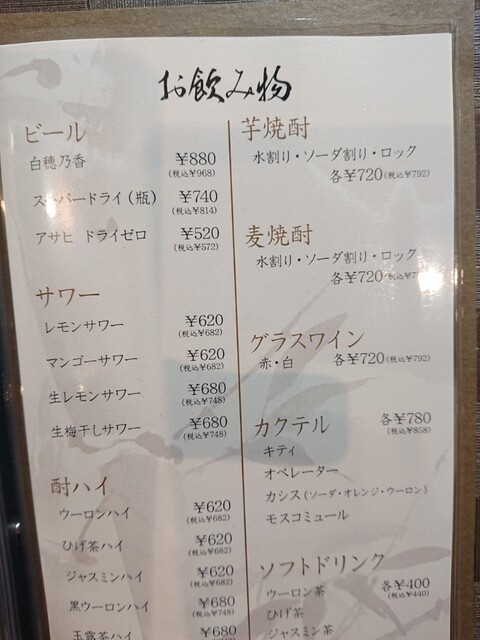 お飲み物
ビール
白穂乃香 ¥880
(税込¥968)
スーパードライ(瓶) ¥740
(税込¥814)
アサヒ ドライゼロ ¥520
(税込¥572)
サワー
レモンサワー ¥620
(税込¥682)
マンゴーサワー ¥620
(税込¥682)
生レモンサワー ¥680
(税込¥748)
生梅干しサワー ¥680
(税込¥748)
酎ハイ
ウーロンハイ ¥620
(税込¥682)
ひげ茶ハイ ¥620
(税込¥682)
ジャスミンハイ ¥620
(税込¥682)
黒ウーロンハイ ¥680
(税込¥748)
玉露茶ハイ ¥680
芋焼酎
水割り・ソーダ割り・ロック
各¥720(税込¥792)
麦焼酎
水割り・ソーダ割り・ロック
各¥720(税込
グラスワイン
赤・白 各¥720(税込¥792)
カクテル 各¥780
(税込¥858)
キティ
オペレーター
カシス(ソーダ・オレンジ・ウーロン)
モスコミュール
ソフトドリンク
ウーロン茶 各¥400
(税込¥440)
ひげ茶
ジャスミン茶